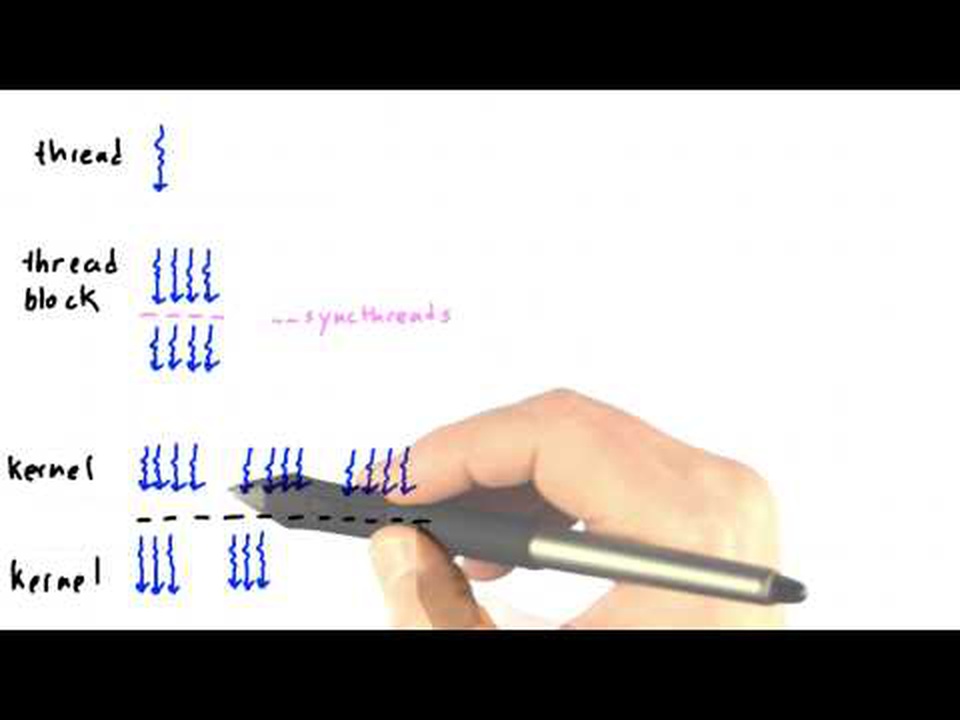 thread
thread
block
__syncthreads
kernel
kernel